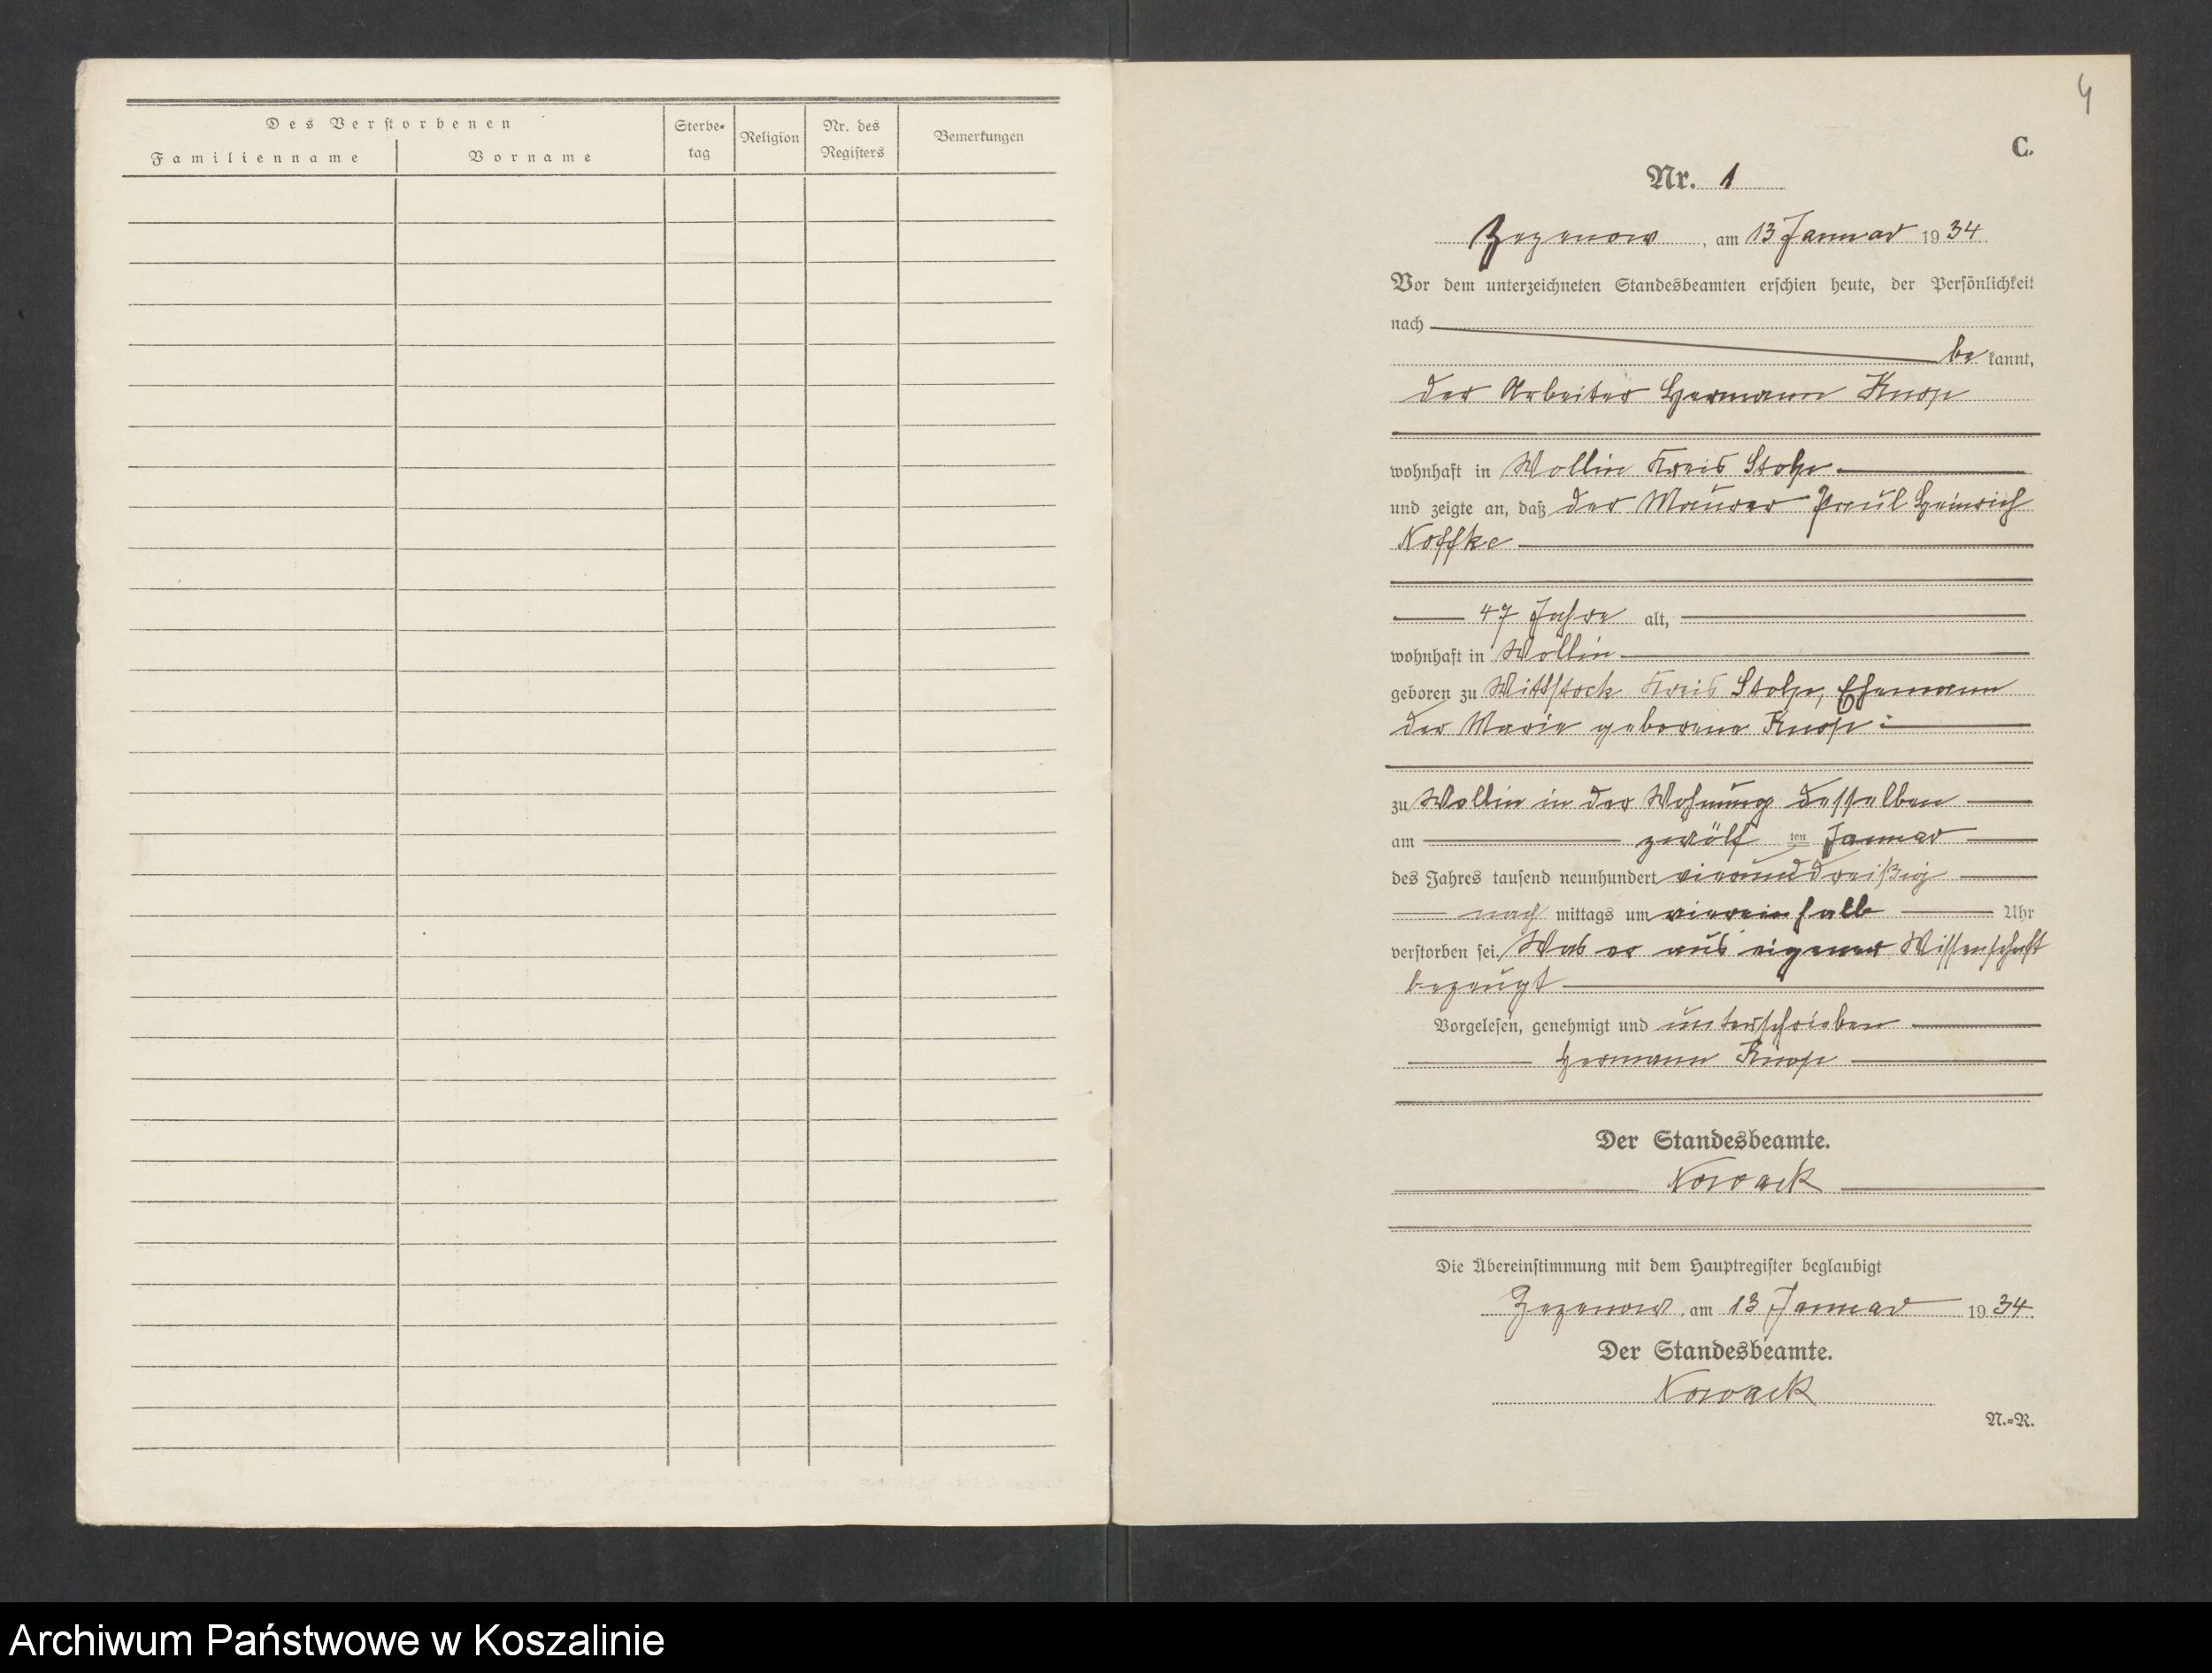 Des Verstorbenen
Familienname
Vorname
Sterbe-
tag
Religion
Nr. des
Registers
Bemerkungen
4
C.
Nr. 1
Zezenow, am 13 Januar 1934
Vor dem unterzeichneten Standesbeamten erschien heute, der Persönlichkeit
nach
be kannt,
der Arbeiter Hermann Knop
wohnhaft in Wollin Kreis Stolp
und zeigte an, daß der Maurer Paul Heinrich
Koffke
47 Jahre alt,
wohnhaft in Wollin
geboren zu Wittstock Kreis Stolp, Ehemann
der Marie geborene Knop
zu Wollin in der Wohnung desselben
am zwölf ten Januar
des Jahres tausend neunhundert vierunddreißig
nach mittags um viereinhalb Uhr
verstorben sei. Was er aus eigener Wissenschaft
bezeugt
Vorgelesen, genehmigt und unterschrieben
Hermann Knop
Der Standesbeamte.
Nowack
Die Übereinstimmung mit dem Hauptregister beglaubigt
Zezenow, am 13 Januar 1934.
Der Standesbeamte.
Nowack
N.-R.
Archiwum Państwowe w Koszalinie